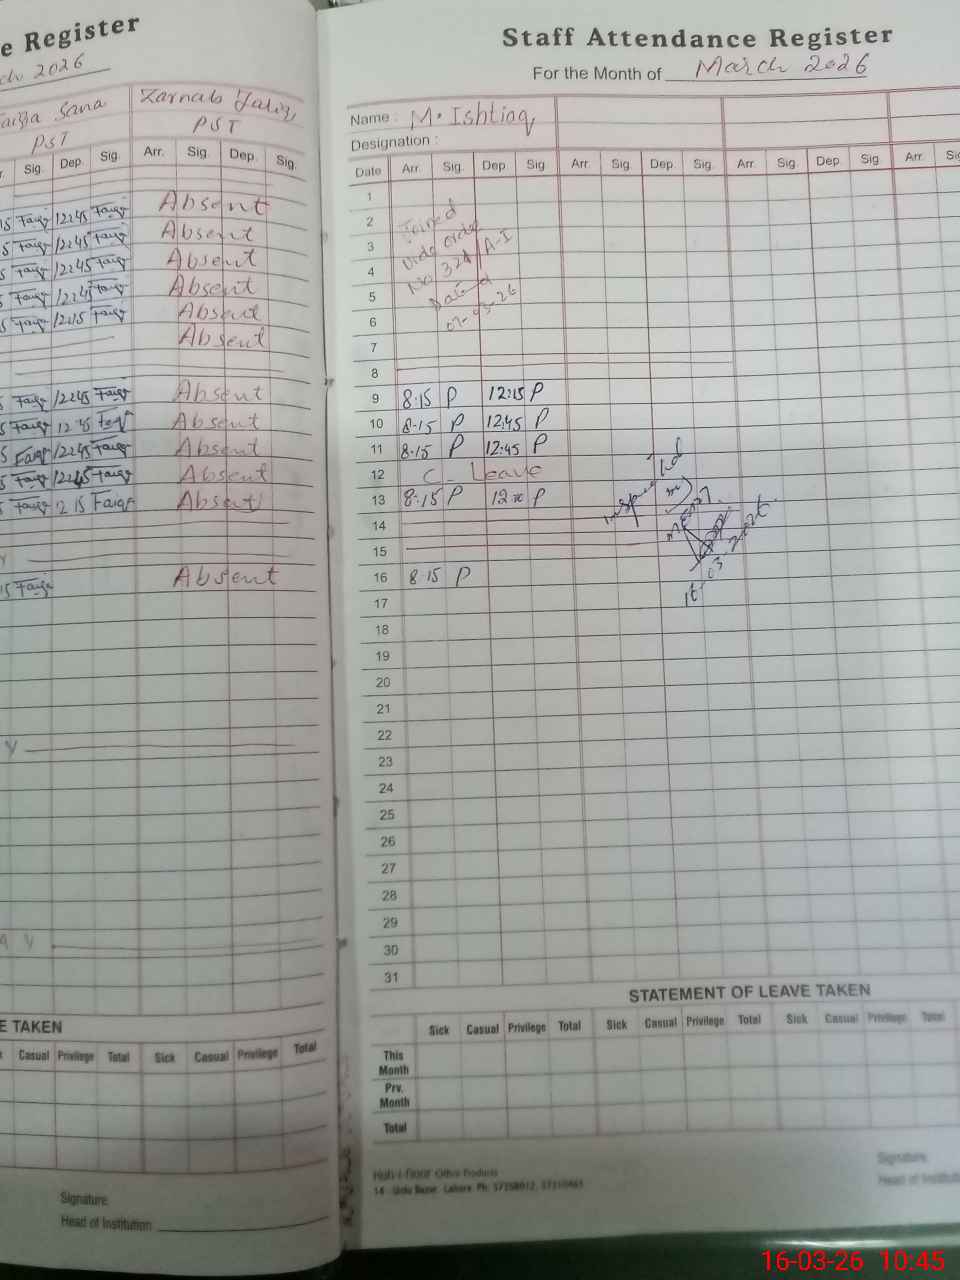 e Register
ch 2026
Faiza Sana
Zarnab
PST
PST
Sig. Dep. Sig. Arr. Sig. Dep. Sig.
15 Faiza 12:45 Faiza Absent
5 Faiza 12:45 Faiza Absent
5 Faiza 12:45 Faiza Absent
5 Faiza 12:45 Faiza Absent
5 Faiza 12:15 Faiza Absent
Absent
5 Faiza 12:45 Faiza Absent
5 Faiza 12:45 Absent
5 Faiza 12:45 Faiza Absent
5 Faiza 12:45 Faiza Absent
5 Faiza 12 15 Faiza Absent
Y
15 Faiza Absent
Y
A Y
E TAKEN
Casual Privilege Total Sick Casual Privilege Total
Signature
Head of Institution
Staff Attendance Register
For the Month of March 2026
Name : M. Ishtiaq
Designation :
Date Arr. Sig. Dep. Sig. Arr. Sig. Dep. Sig. Arr. Sig. Dep. Sig. Arr. Sig
1
2 Joined
3 Vide order
4 No 324/A-I
5 Dated
6 07-03-26
7
8
9 8:15 P 12:15 P
10 8-15 P 12:45 P
11 8-15 P 12:45 P
12 C. Leave
13 8:15 P P
14
15
16 8 15 P
17
18
19
20
21
22
23
24
25
26
27
28
29
30
31
STATEMENT OF LEAVE TAKEN
Sick Casual Privilege Total Sick Casual Privilege Total Sick Casual Privilege Total
This Month
Prv. Month
Total
14 - Urdu Bazar, Lahore Ph:
Signature
Head of Instituti
16-03-26 10:45